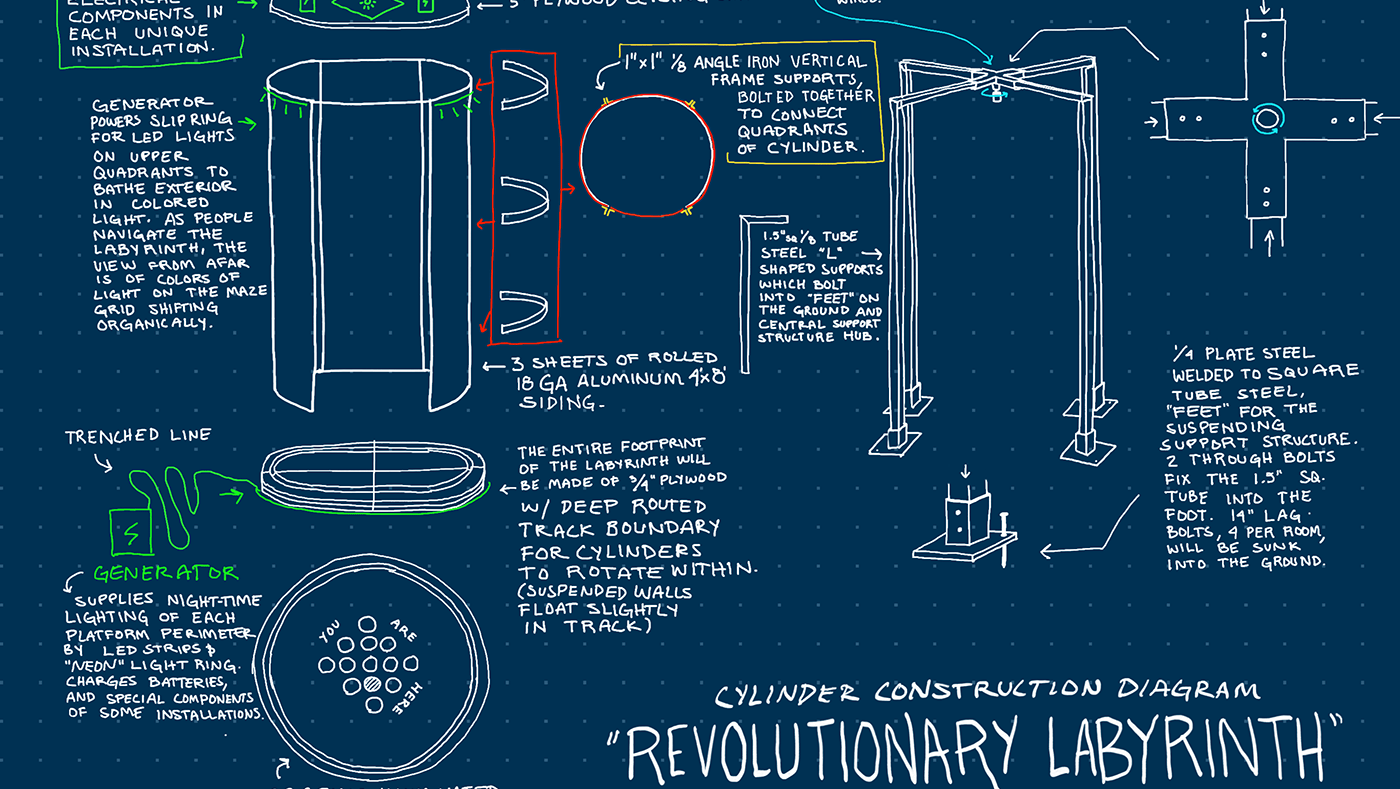 COMPONENTS IN
EACH UNIQUE
INSTALLATION.
GENERATOR
POWERS SLIP RING
FOR LED LIGHTS
ON UPPER
QUADRANTS TO
BATHE EXTERIOR
IN COLORED
LIGHT. AS PEOPLE
NAVIGATE THE
LABYRINTH, THE
VIEW FROM AFAR
IS OF COLORS OF
LIGHT ON THE MAZE
GRID SHIFTING
ORGANICALLY.
1"x1" 1/8 ANGLE IRON VERTICAL
FRAME SUPPORTS,
BOLTED TOGETHER
TO CONNECT
QUADRANTS
OF CYLINDER.
1.5" SQ 1/8 TUBE
STEEL "L"
SHAPED SUPPORTS
WHICH BOLT
INTO "FEET" ON
THE GROUND AND
CENTRAL SUPPORT
STRUCTURE HUB.
3 SHEETS OF ROLLED
18 GA ALUMINUM 4'x8'
SIDING.
1/4 PLATE STEEL
WELDED TO SQUARE
TUBE STEEL,
"FEET" FOR THE
SUSPENDING
SUPPORT STRUCTURE.
2 THROUGH BOLTS
FIX THE 1.5" SQ.
TUBE INTO THE
FOOT. 14" LAG
BOLTS, 4 PER ROOM,
WILL BE SUNK
INTO THE GROUND.
TRENCHED LINE
THE ENTIRE FOOTPRINT
OF THE LABYRINTH WILL
BE MADE OF 3/4" PLYWOOD
W/ DEEP ROUTED
TRACK BOUNDARY
FOR CYLINDERS
TO ROTATE WITHIN.
(SUSPENDED WALLS
FLOAT SLIGHTLY
IN TRACK)
GENERATOR
SUPPLIES NIGHT-TIME
LIGHTING OF EACH
PLATFORM PERIMETER
BY LED STRIPS &
"NEON" LIGHT RING.
CHARGES BATTERIES,
AND SPECIAL COMPONENTS
OF SOME INSTALLATIONS.
YOU ARE
HERE
CYLINDER CONSTRUCTION DIAGRAM
"REVOLUTIONARY LABYRINTH"